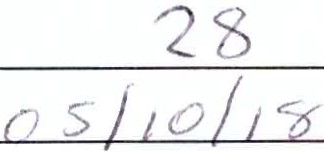 28
05/10/18